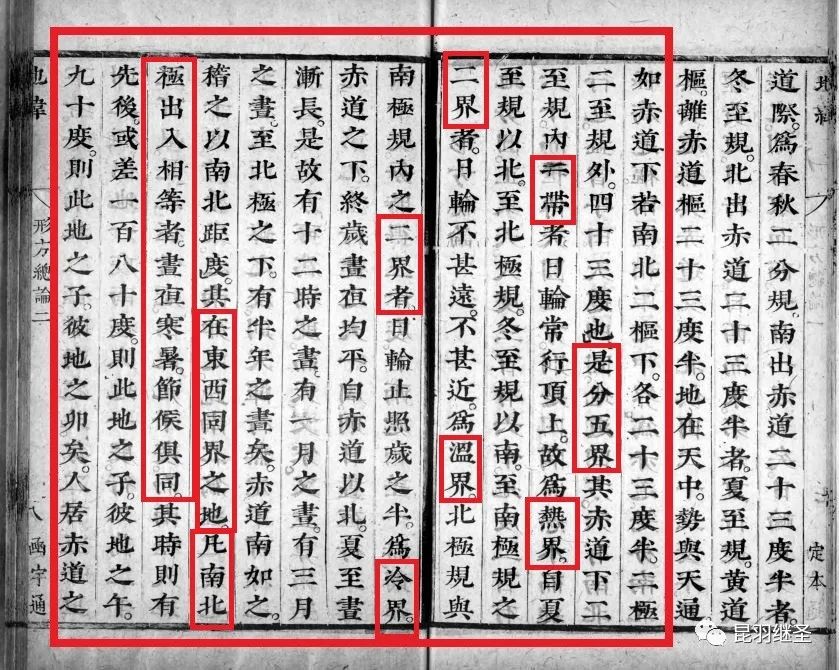 地緯
定本
道際。爲春秋二分規。南出赤道二十三度半者。
冬至規。北出赤道二十三度半者。夏至規。黃道
樞。離赤道樞二十三度半。地在天中。勢與天通
如赤道下若南北二樞下。各二十三度半。二極
二至規外。四十三度也。是分五界。其赤道下二
至規內帶者。日輪常行頂上。故爲熱界。自夏
至規以北。至北極規。冬至規以南。至南極規之
二界者。日輪不甚遠。不甚近。爲溫界。北極規與
南極規內之二界者。日輪止照歲之半。爲冷界。
赤道之下。終歲晝夜均平。自赤道以北。夏至晝
漸長。是故有十二時之晝。有一月之晝。有三月
之晝。至北極之下。有半年之晝矣。赤道南如之。
稽之以南北距度。其在東西同界之地。凡南北
極出入相等者。晝夜寒暑。節候俱同。其時則有
先後。或差一百八十度。則此地之子。彼地之午。
九十度。則此地之子。彼地之卯矣。人居赤道之
地緯
形方總論二
八
函宇通
昆羽继圣